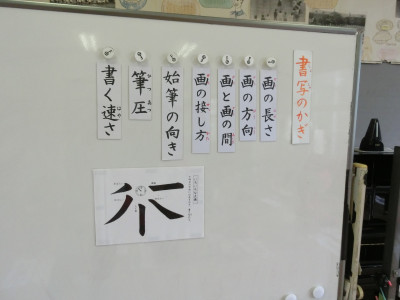 書写のかぎ
画の長さ
画の方向
画と画の間
画の接し方
始筆の向き
筆圧
書く速さ